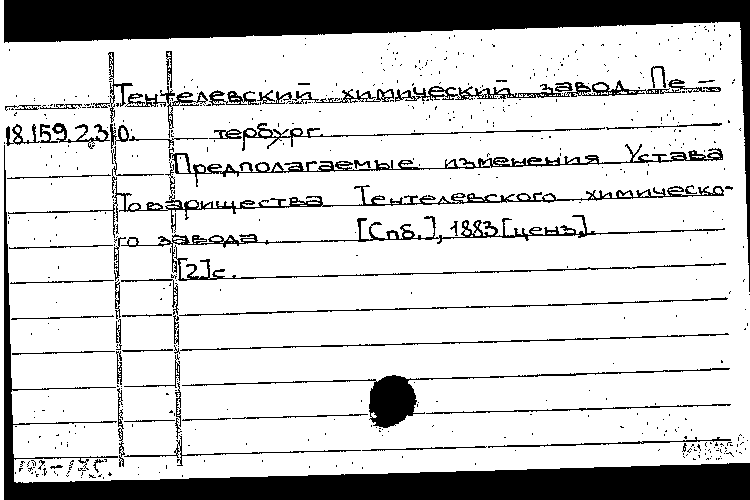 Тентелевский химический завод. Пе-
18.159.2.30. тербург.
Предполагаемые изменения Устава
Товарищества Тентелевского химическо-
го завода. [Спб.], 1883 [ценз.].
[2] с.